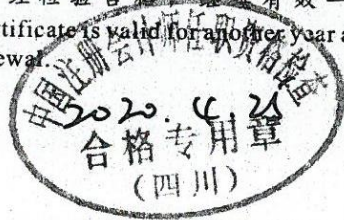 tificate is valid for another year a
ewal.
中国注册会计师任职资格检查
2020.4.21
合格专用章
(四川)